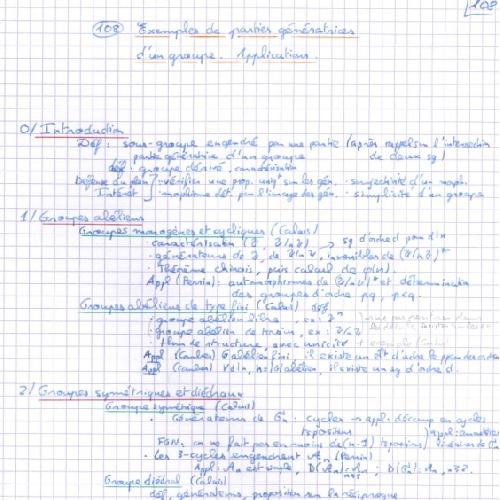 108
108 Exemples de parties génératrices
d'un groupe. Applications.
0/ Introduction
Déf : sous-groupe engendré par une partie (après rappel sur l'intersection
partie génératrice d'un groupe de deux sg)
déf : groupe dérivé, caractérisation
Défense du plan - vérifier une prop. uniq^t sur les gén. - surjectivité d'un morph.
Intérêt - morphisme dét^é par l'image des gén. - simplicité d'un groupe
1/ Groupes abéliens
Groupes monogènes et cycliques (Calais)
- caractérisation (Z, Z/nZ) → sg d'ordre d pour d|n
- générateurs de Z, de Z/nZ, inversibles de (Z/nZ)*
- Théorème chinois, puis calcul de φ(n).
Appl (Perrin) : automorphismes de (Z/nZ) et détermination
des groupes d'ordre pq, p<q.
Groupes abéliens de type fini (Calais) déf
- groupe abélien libre, ex : Z^n
- groupe abélien de torsion, ex : Z/nZ
- thm de structure, avec unicité
Appl G abélien fini, il existe un él^t d'ordre le ppcm des ordres
Appl ∀d|n, n=|G| abélien, il existe un sg d'ordre d.
2/ Groupes symétriques et diédraux
Groupe symétrique (Calais)
- Générateurs de : cycles → appl. décomp en cycles
transpositions
on ne fait pas en moins de (n-1) transpositions
- Les 3-cycles engendrent An (Perrin)
Appl : An est simple,
Groupe diédral (Calais)
déf, générateurs, proposition sur la réciproque